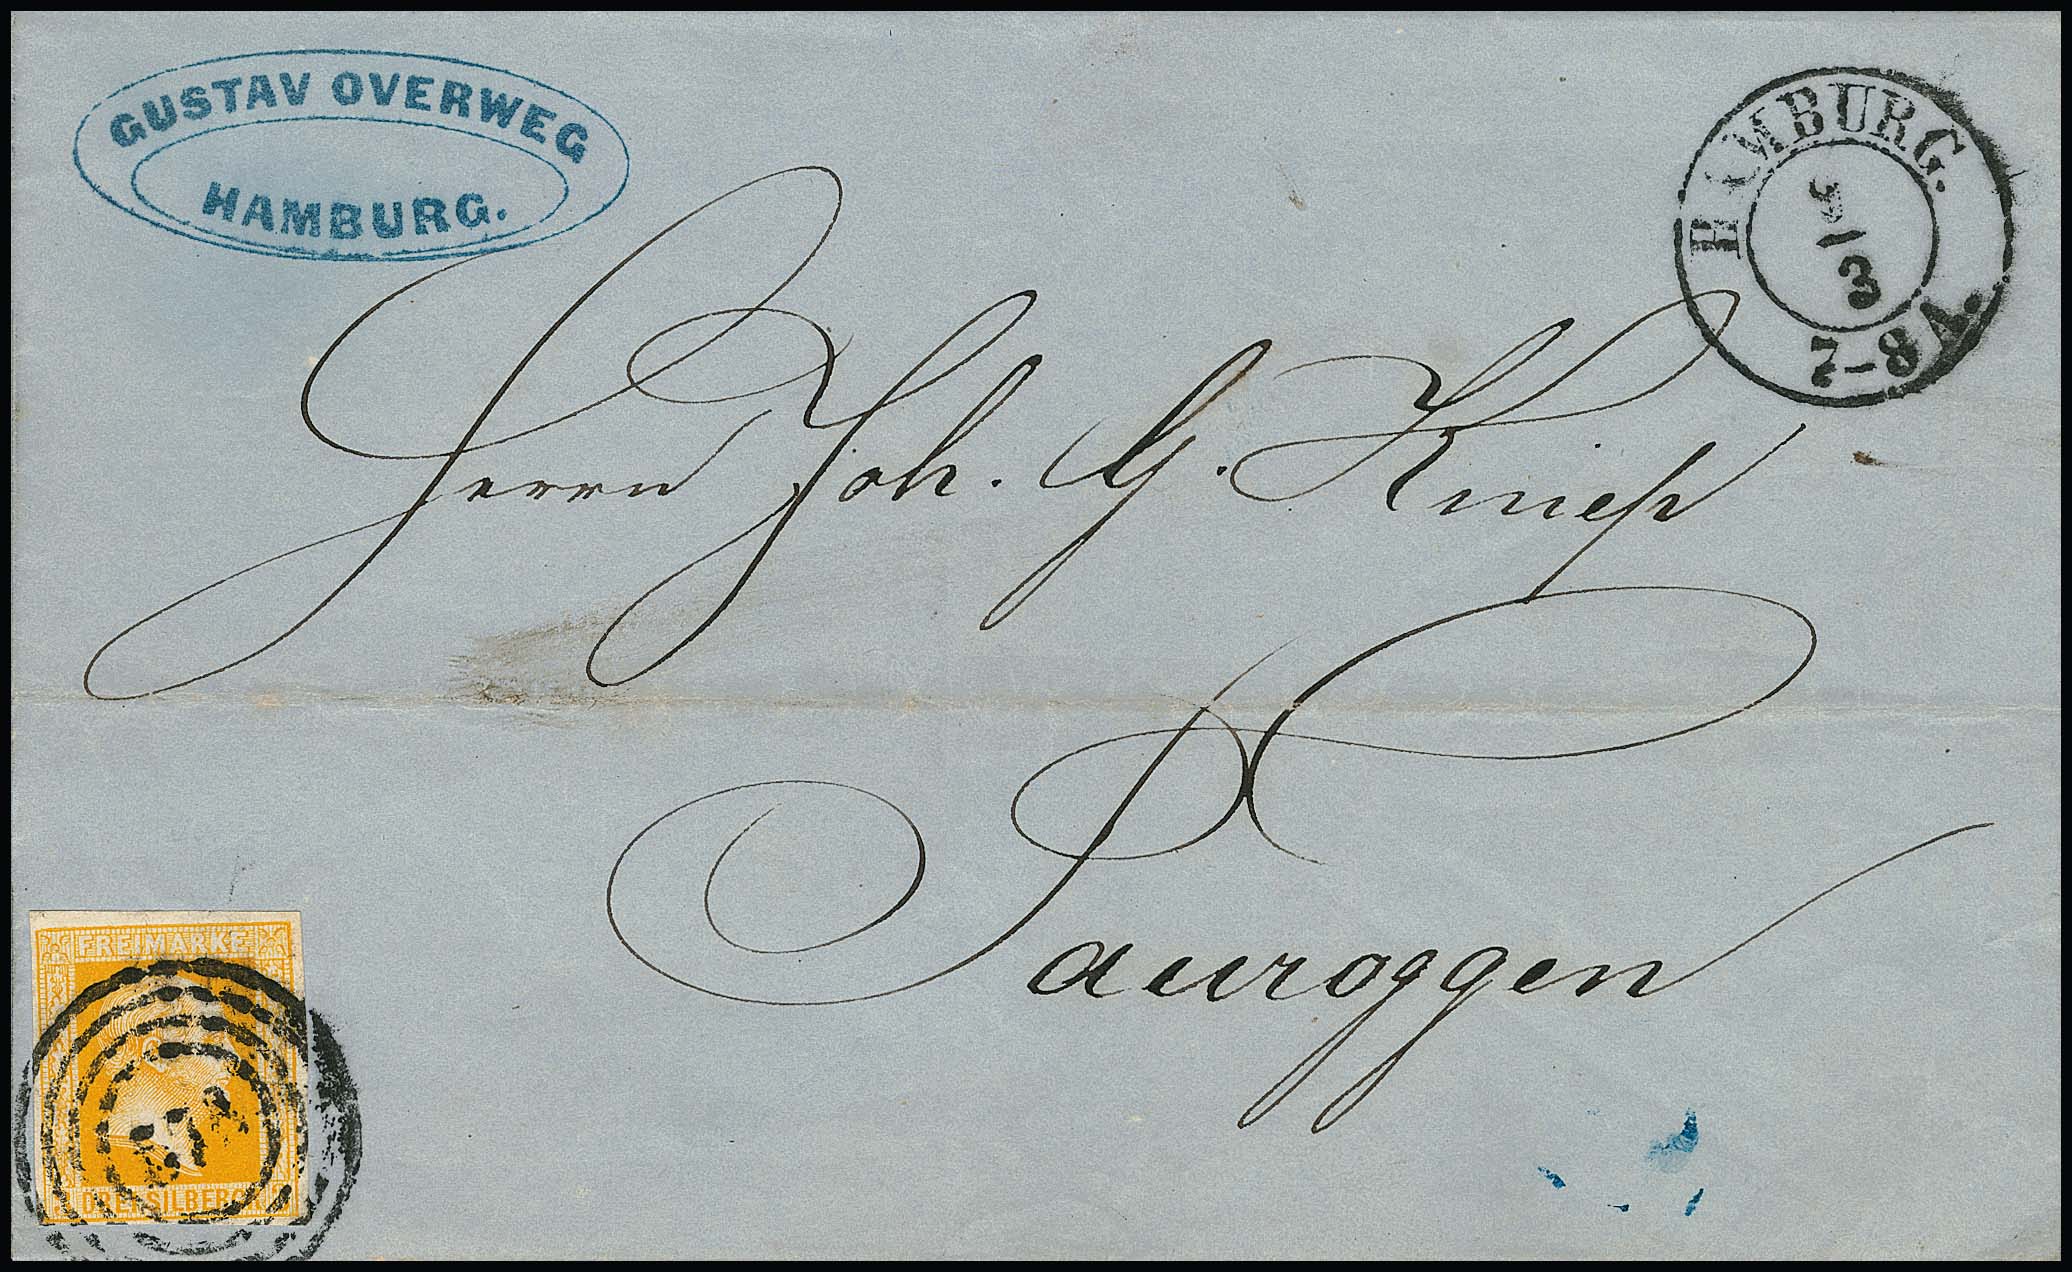 GUSTAV OVERWEG
HAMBURG.
HAMBURG.
3
7-8 A.
Herrn Joh. G. Kniess
Tauroggen
FREIMARKE
DREI SILBERGR.